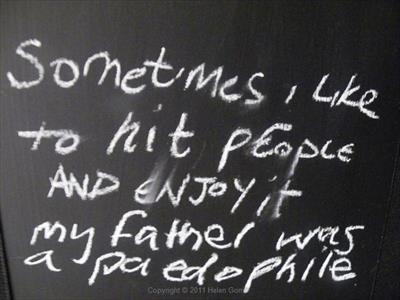 Sometimes i like
to hit people
AND ENJOY it
my father was
a paedophile
Copyright © 2011 Helen Gom